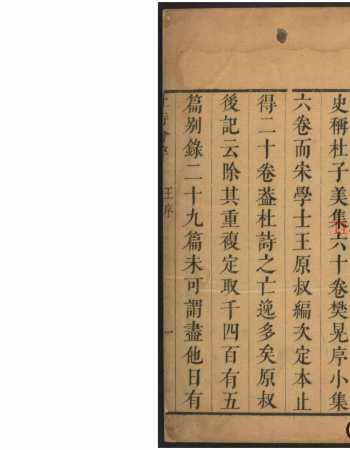 史稱杜子美集六十卷樊晃序小集
六卷而宋學士王原叔編次定本止
得二十卷葢杜詩之亡逸多矣原叔
後記云除其重複定取千四百有五
篇别錄二十九篇未可謂盡他日有
王序
一